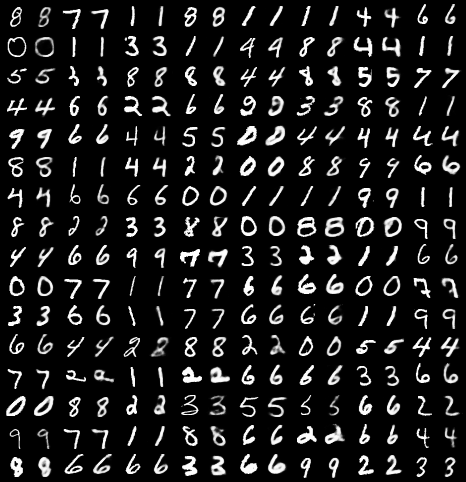 8 8 7 7 1 1 8 8 1 1 1 1 4 4 6 6
0 0 1 1 3 3 1 1 4 4 8 8 4 4 1 1
5 5 3 3 8 8 8 8 4 4 8 8 5 5 7 7
4 4 6 6 2 2 6 6 2 3 3 8 8 1 1
9 9 6 6 4 4 5 5 0 0 4 4 4 4 4 4
8 8 1 1 4 4 2 2 0 0 8 8 9 9 6 6
4 4 6 6 6 6 0 0 1 1 1 1 9 9 1 1
8 8 2 2 3 3 8 8 0 0 8 8 0 0 9 9
4 4 6 6 9 9 7 7 3 3 2 2 1 1 6 6
0 0 7 7 1 1 7 7 6 6 6 6 0 0 7 7
3 3 6 6 1 1 7 7 6 6 6 6 1 1 9 9
6 6 4 4 2 8 8 8 2 2 0 0 5 5 4 4
7 7 2 2 1 1 2 2 6 6 6 6 3 3 6 6
0 0 8 8 2 2 3 3 5 5 5 5 6 6 2 2
9 9 7 7 1 1 8 8 6 6 2 2 6 6 4 4
8 8 6 6 6 6 3 3 6 6 9 9 2 2 3 3